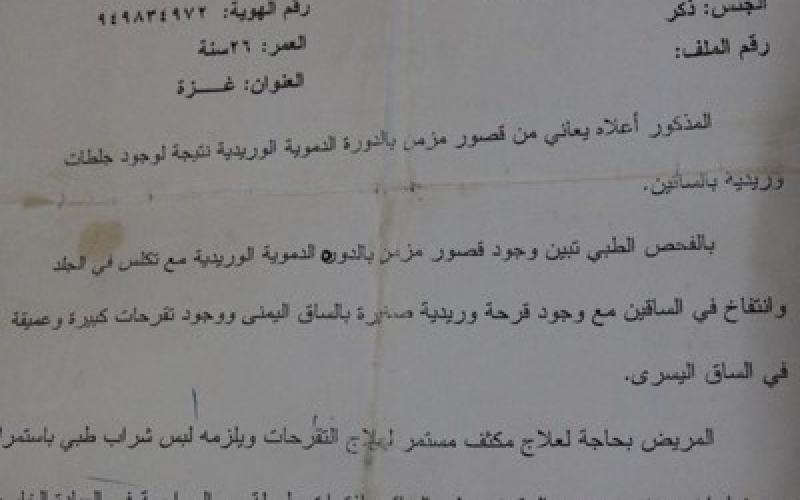 الجنس: ذكر
رقم الهوية: ٩٤٩٨٣٤٩٧٢
رقم الملف:
العمر: ٢٦سنة
العنوان: غـــزة
المذكور أعلاه يعاني من قصور مزمن بالدورة الدموية الوريدية نتيجة لوجود جلطات
وريدية بالساقين.
بالفحص الطبي تبين وجود قصور مزمن بالدوره الدموية الوريدية مع تكلس في الجلد
وانتفاخ في الساقين مع وجود قرحة وريدية صغيرة بالساق اليمنى ووجود تقرحات كبيرة وعميقة
في الساق اليسرى.
المريض بحاجة لعلاج مكثف مستمر لعلاج التقرحات ويلزمه لبس شراب طبي باستمرا